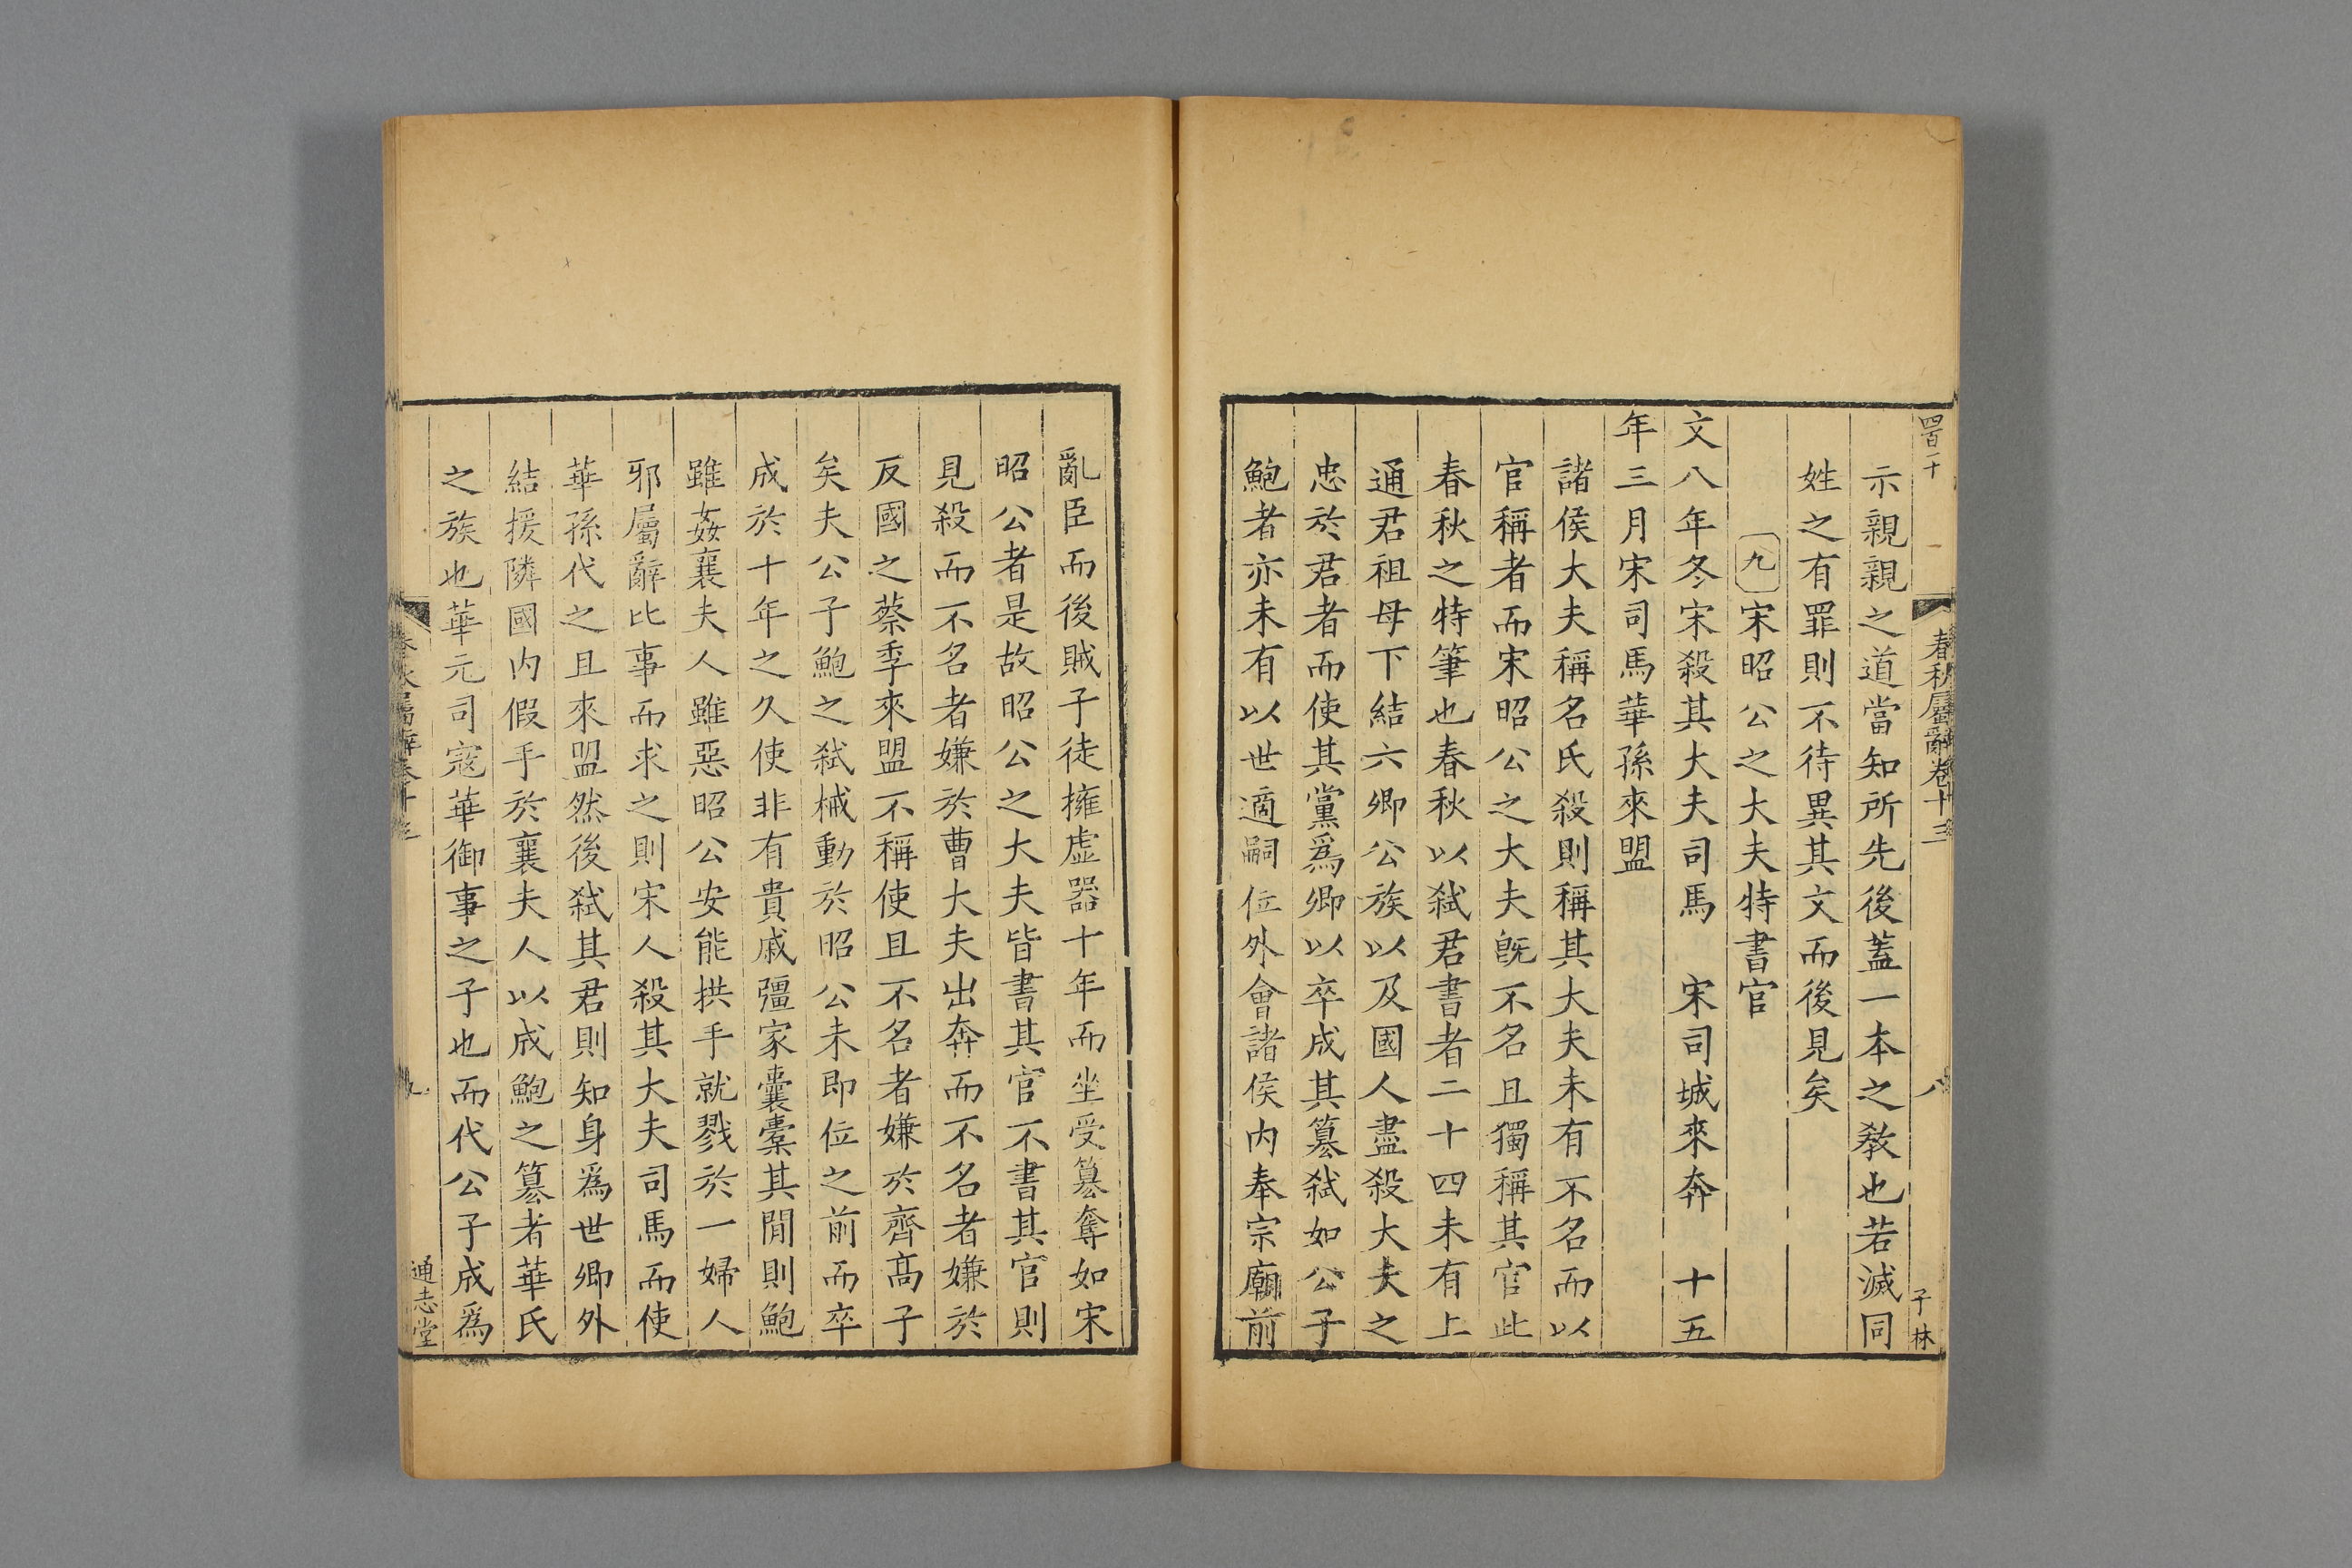 四百二十
春秋屬辭卷十三
八
子林
示親親之道當知所先後蓋一本之敎也若滅同
姓之有罪則不待異其文而後見矣
九 宋昭公之大夫特書官
文八年冬宋殺其大夫司馬 宋司城來奔 十五
年三月宋司馬華孫來盟
諸侯大夫稱名氏殺則稱其大夫未有不名而以
官稱者而宋昭公之大夫旣不名且獨稱其官此
春秋之特筆也春秋以弑君書者二十四未有上
通君祖母下結六卿公族以及國人盡殺大夫之
忠於君者而使其黨爲卿以卒成其簒弑如公子
鮑者亦未有以世適嗣位外會諸侯内奉宗廟前
亂臣而後賊子徒擁虚器十年而坐受簒奪如宋
昭公者是故昭公之大夫皆書其官不書其官則
見殺而不名者嫌於曹大夫出奔而不名者嫌於
反國之蔡季來盟不稱使且不名者嫌於齊高子
矣夫公子鮑之弑械動於昭公未即位之前而卒
成於十年之久使非有貴戚彊家囊橐其閒則鮑
雖姦襄夫人雖惡昭公安能拱手就戮於一婦人
邪屬辭比事而求之則宋人殺其大夫司馬而使
華孫代之且來盟然後弑其君則知身爲世卿外
結援隣國内假手於襄夫人以成鮑之簒者華氏
之族也華元司寇華御事之子也而代公子成爲
春秋屬辭卷十三
九
通志堂